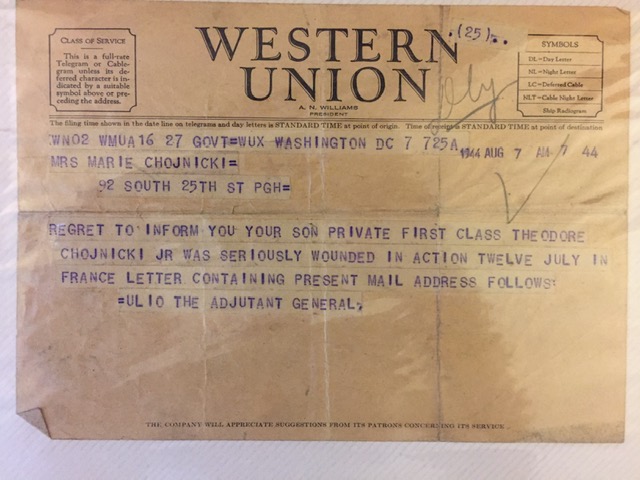 (25)..
CLASS OF SERVICE
This is a full-rate
Telegram or Cable-
gram unless its de-
ferred character is in-
dicated by a suitable
symbol above or pre-
ceding the address.
WESTERN
UNION
A. N. WILLIAMS
PRESIDENT
SYMBOLS
DL=Day Letter
NL=Night Letter
LC=Deferred Cable
NLT=Cable Night Letter
Ship Radiogram
The filing time shown in the date line on telegrams and day letters is STANDARD TIME at point of origin. Time of receipt is STANDARD TIME at point of destination
WN02 WMUA16 27 GOVT=WUX WASHINGTON DC 7 725A
1944 AUG 7 AM 7 44
MRS MARIE CHOJNICKI=
92 SOUTH 25TH ST PGH=
REGRET TO INFORM YOU YOUR SON PRIVATE FIRST CLASS THEODORE
CHOJNICKI JR WAS SERIOUSLY WOUNDED IN ACTION TWELVE JULY IN
FRANCE LETTER CONTAINING PRESENT MAIL ADDRESS FOLLOWS:
=ULIO THE ADJUTANT GENERAL.
THE COMPANY WILL APPRECIATE SUGGESTIONS FROM ITS PATRONS CONCERNING ITS SERVICE